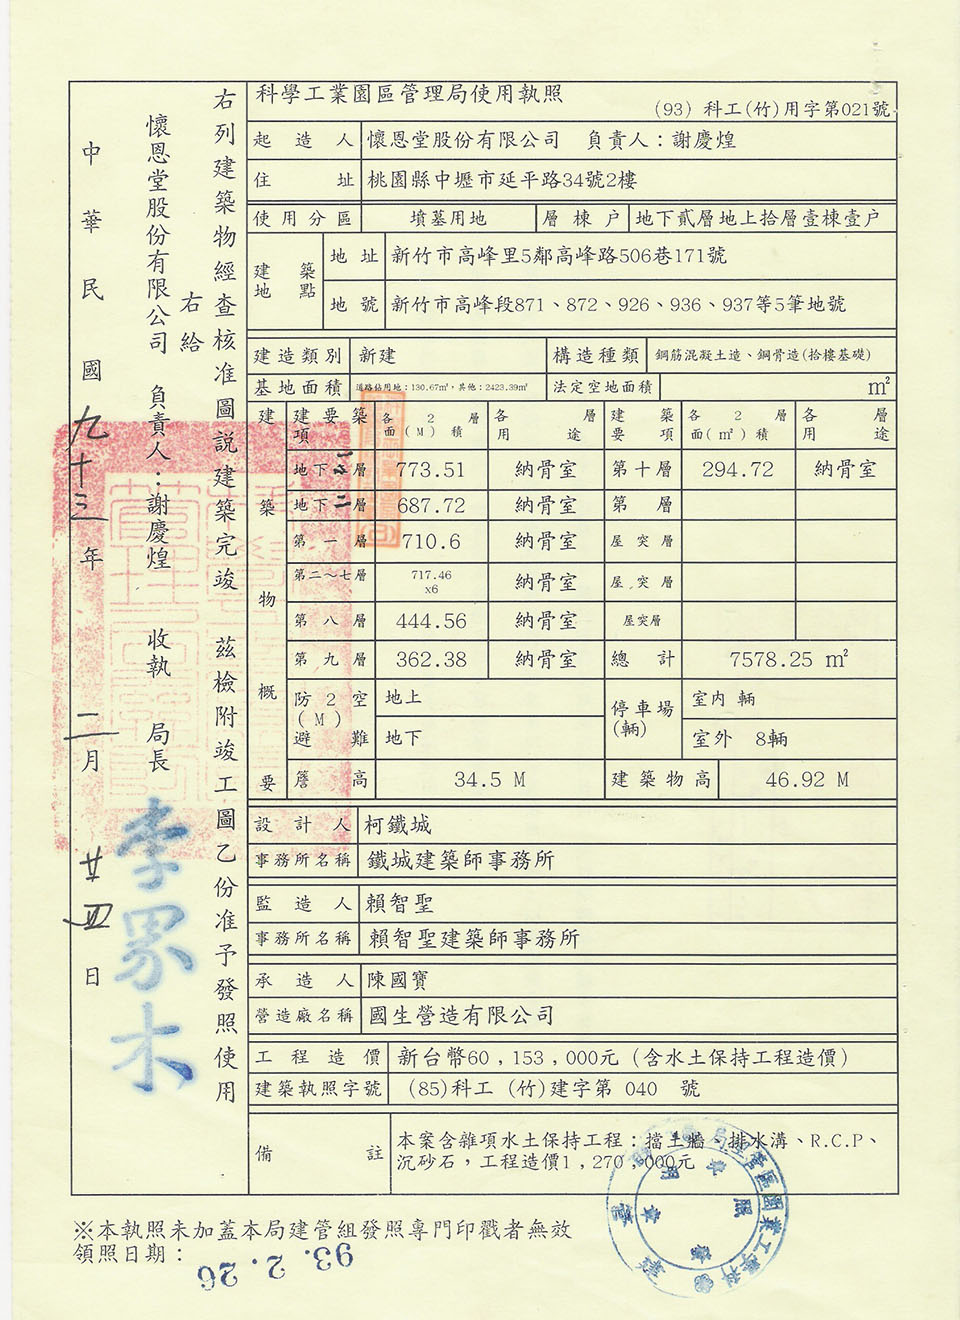 科學工業園區管理局使用執照
(93) 科工(竹)用字第021號
起造人 懷恩堂股份有限公司 負責人：謝慶煌
住址 桃園縣中壢市延平路34號2樓
使用分區 墳墓用地 層棟户 地下貳層地上拾層壹棟壹户
建築地點 地址 新竹市高峰里5鄰高峰路506巷171號
地號 新竹市高峰段871、872、926、936、937等5筆地號
建造類別 新建 構造種類 鋼筋混凝土造、鋼骨造(拾樓基礎)
基地面積 道路佔用地：130.67㎡，其他：2423.39㎡ 法定空地面積 ㎡
建築物概要
建築要項 各層面積(M2) 各層用途 建築要項 各層面積(m²) 各層用途
地下一層 773.51 納骨室 第十層 294.72 納骨室
地下二層 687.72 納骨室 第層
第一層 710.6 納骨室 屋突層
第二～七層 717.46 x6 納骨室 屋突層
第八層 444.56 納骨室 屋突層
第九層 362.38 納骨室 總計 7578.25 ㎡
防空避難(M2) 地上 停車場(輛) 室內 輛
地下 室外 8輛
簷高 34.5 M 建築物高 46.92 M
設計人 柯鐵城
事務所名稱 鐵城建築師事務所
監造人 賴智聖
事務所名稱 賴智聖建築師事務所
承造人 陳國寶
營造廠名稱 國生營造有限公司
工程造價 新台幣60，153，000元 (含水土保持工程造價)
建築執照字號 (85)科工 (竹)建字第 040 號
備註 本案含雜項水土保持工程：擋土牆、排水溝、R.C.P、
沉砂石，工程造價1，270，000元
右列建築物經查核准圖說建築完竣 茲檢附竣工圖乙份准予發照使用
右給
懷恩堂股份有限公司 負責人：謝慶煌 收執 局長
李界木
中華民國九十三年二月廿四日
※本執照未加蓋本局建管組發照專門印戳者無效
領照日期：
93.2.26